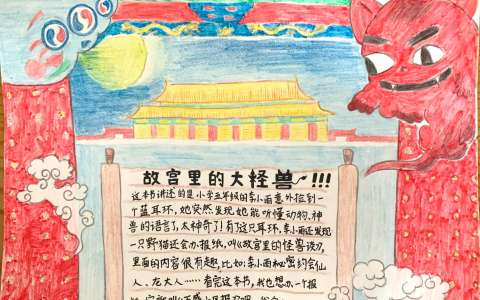 故宫里的大怪兽!!!
这本书讲述的是小学五年级的李小雨意外捡到一
个蓝耳环,她突然发现她能听懂动物、神
兽的语言了,太神奇了!有了这只耳环,李小雨还发现
一只野猫还会办报纸,叫《故宫里的怪兽谈》,
里面的内容很有趣,比如:李小雨秘密约会仙
人、龙大人……看完这本书,我也想办一个报